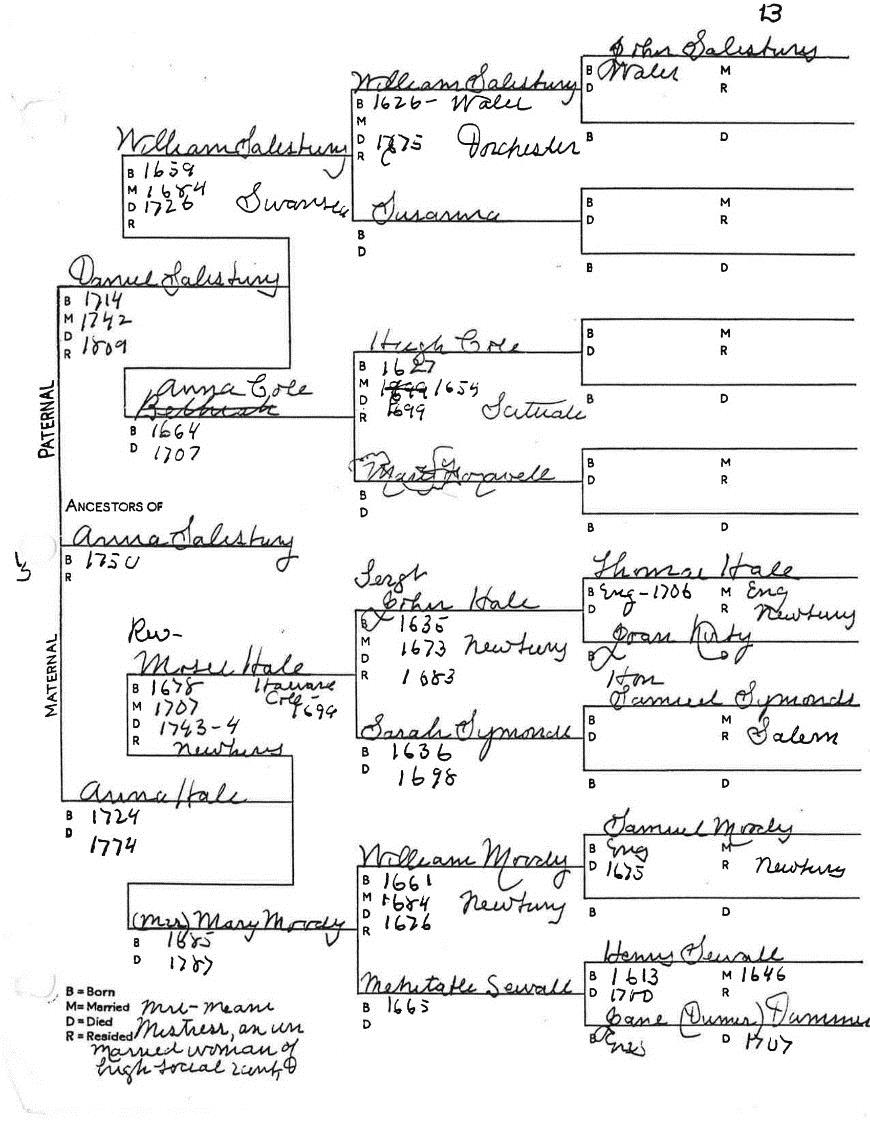 13
John Salisbury
B Wales M
D R
B D
William Salisbury
B 1626- Wales
M
D 1675 Dorchester
R
William Salisbury
B 1659
M 1684
D 1726 Swansea
R
Susanna
B
D
B M
D R
B D
Daniel Salisbury
B 1714
M 1742
D 1809
R
Hugh Cole
B 1627
M 1655
D 1699 Scituate
R
B M
D R
B D
Anna Cole
Bethiah
B 1664
D 1707
Mary Foxwell
B
D
B M
D R
B D
PATERNAL
ANCESTORS OF
Anna Salisbury
B 1750
R
MATERNAL
Thomas Hale
B Eng-1706 M Eng
D R Newbury
Joan Kirby
B D
Sergt
John Hale
B 1635
M 1673 Newbury
D
R 1683
Rev-
Moses Hale
B 1678 Havard
M 1707 Coll- 1699
D 1743-4
R Newbury
Hon
Samuel Symonds
B M
D R Salem
B D
Sarah Symonds
B 1636
D 1698
Anna Hale
B 1724
D 1774
Samuel Moody
B Eng M
D 1675 R Newbury
B D
William Moody
B 1661
M 1684 Newbury
D 1626
R
(Mrs) Mary Moody
B 1685
D 1757
Henry Sewall
B 1613 M 1646
D 1700 R
Jane (Dumer) Dummer
B Eng D 1707
Mehitable Sewall
B 1665
D
B = Born
M = Married Mrs- Means
D = Died Mistress, an un
R = Resided married woman of
high social rank